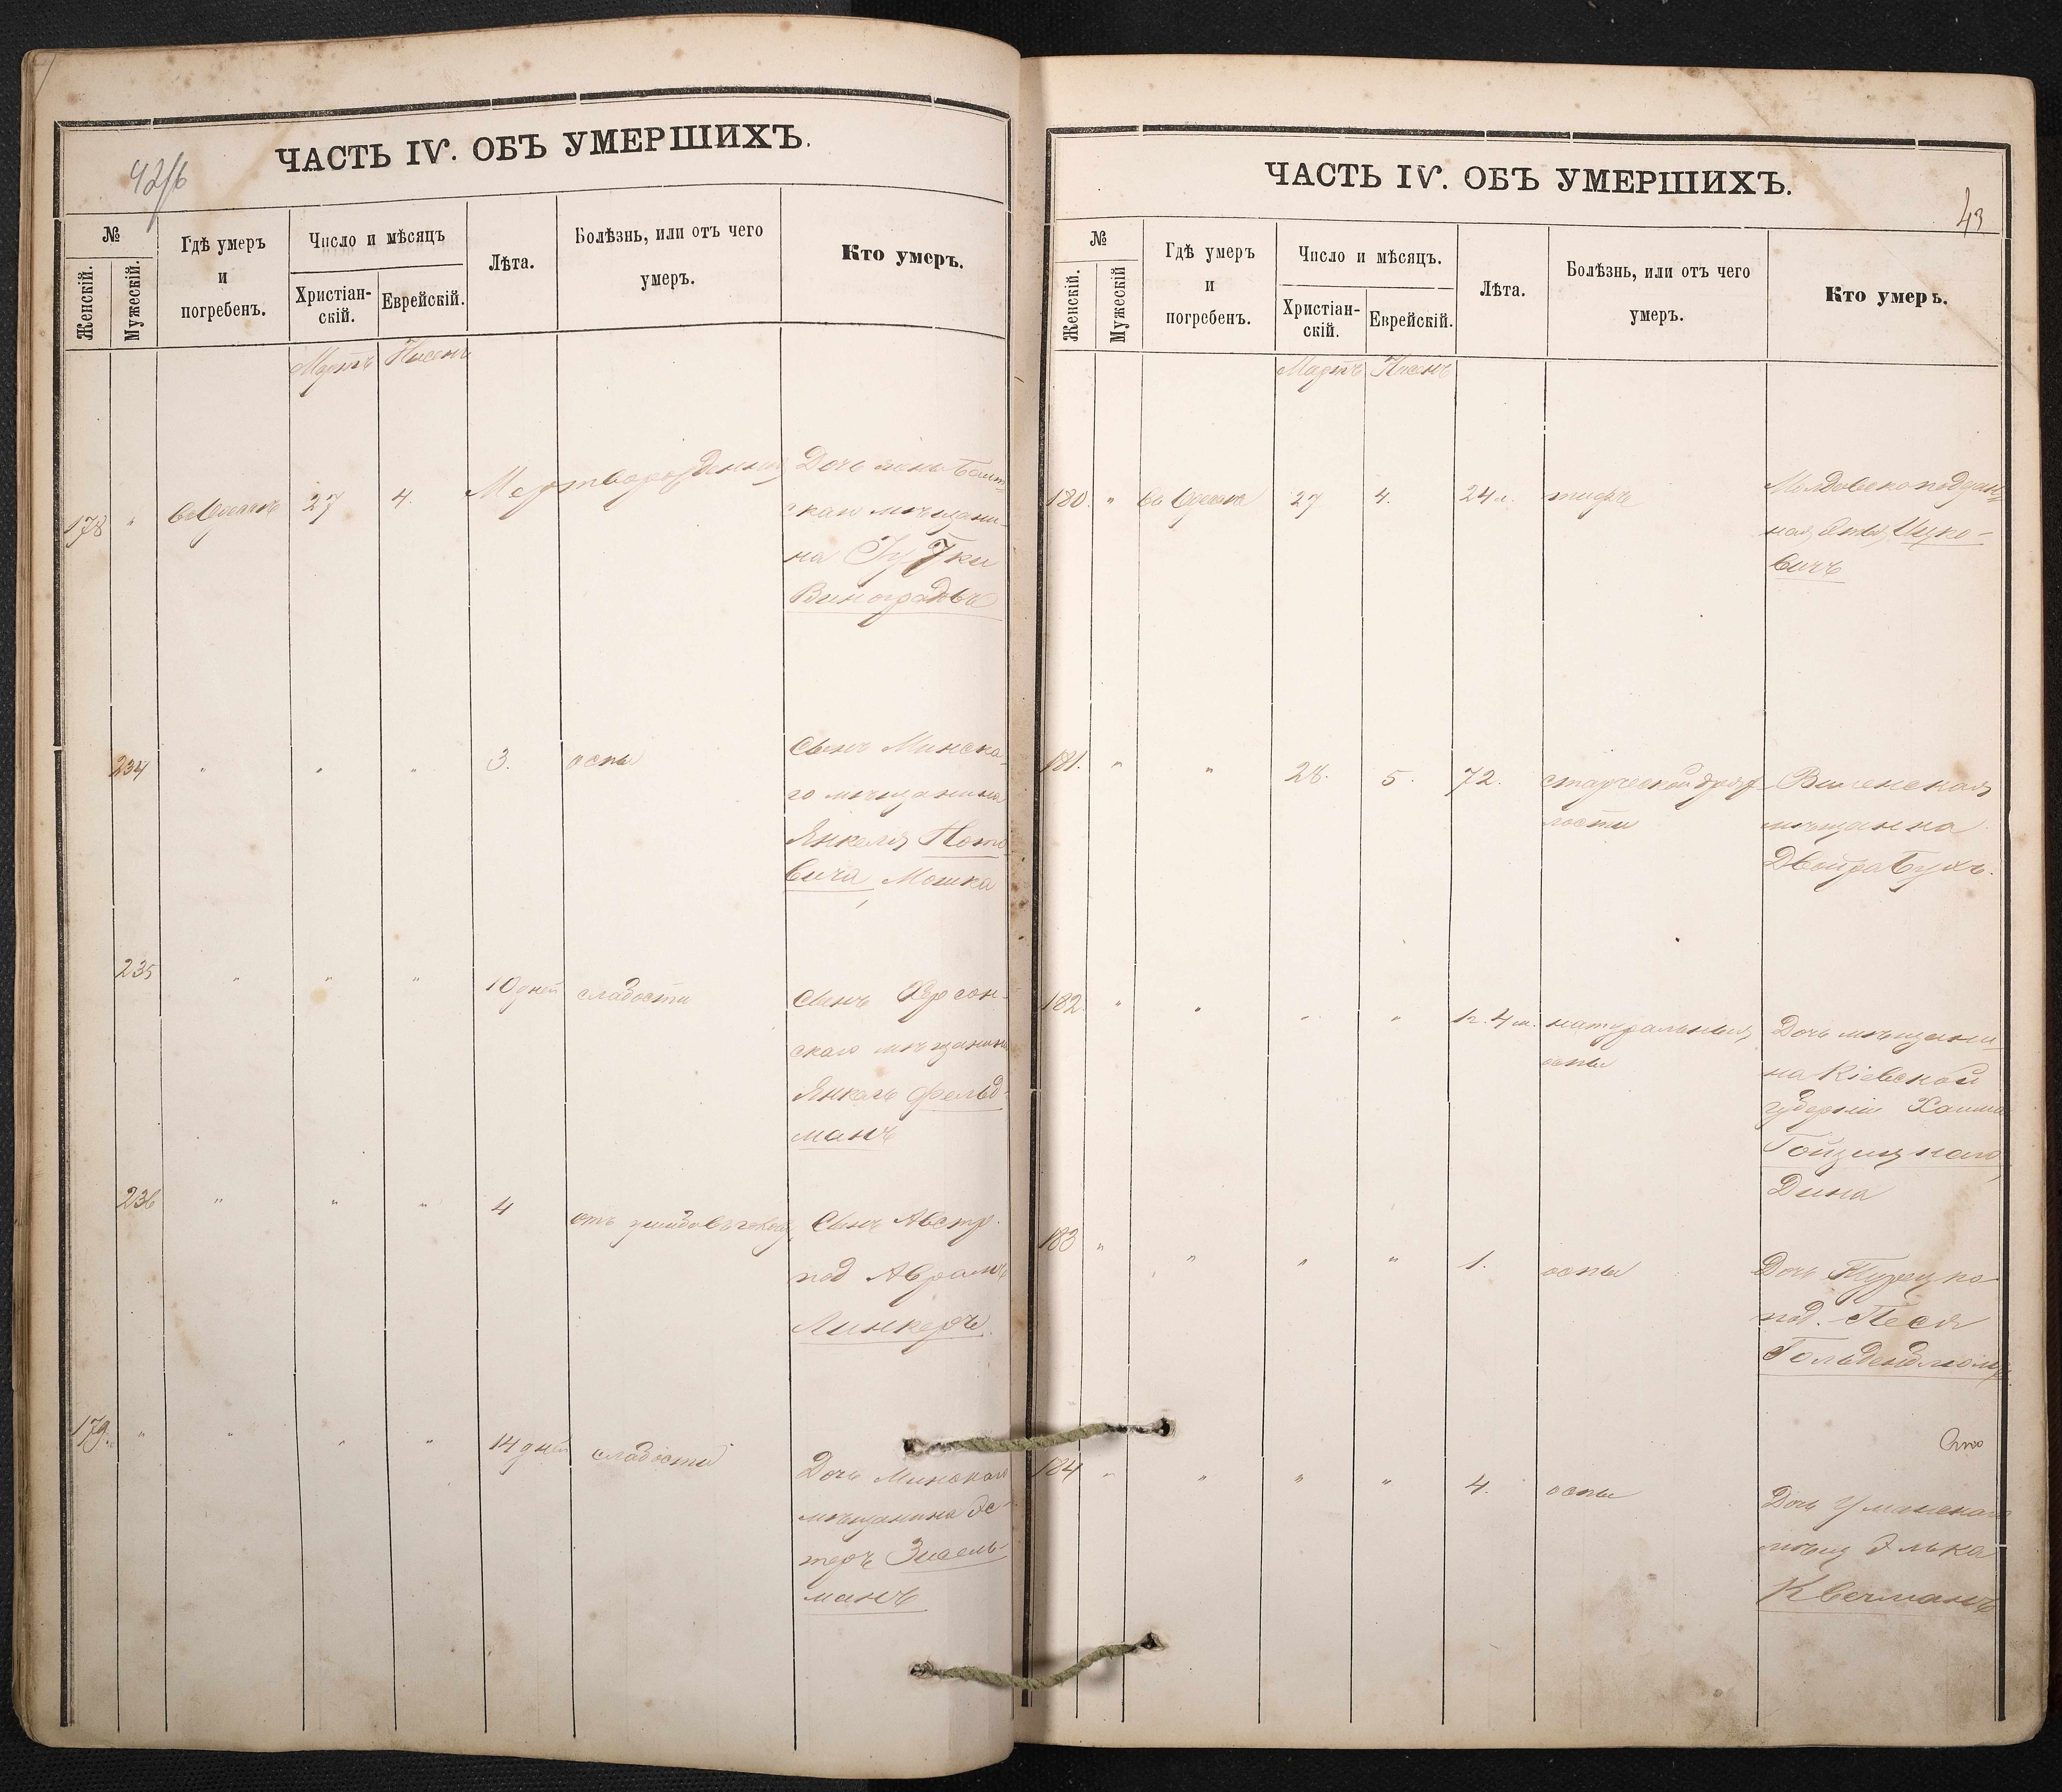 42/б
ЧАСТЬ IV. ОБЪ УМЕРШИХЪ.
№
Женскій.
Мужескій.
Гдѣ умеръ
и
погребенъ.
Число и мѣсяцъ
Христіан-
скій.
Еврейскій.
Лѣта.
Болѣзнь, или отъ чего
умеръ.
Кто умеръ.
Мартъ Нисенъ
178 " въ Одессѣ 27 4. Мертворожденная Дочь
скаго мѣщани-
на
Виноградовъ
234 " " " 3. оспы Сынъ Минска-
го мѣщанина
Янкеля Ното-
вича Мошка
235 " " " 10 дней слабости Сынъ Херсон-
скаго мѣщанина
Янкель Фельд-
манъ
236 " " " 4 отъ Сынъ Австр.
под Аврамъ
Линкеръ
179. " " " " 14 дней слабости Дочь Минскаго
мѣщанина Эс-
теръ Зисель-
манъ
ЧАСТЬ IV. ОБЪ УМЕРШИХЪ.
43
№
Женскій.
Мужескій
Гдѣ умеръ
и
погребенъ.
Число и мѣсяцъ.
Христіан-
скій.
Еврейскій.
Лѣта.
Болѣзнь, или отъ чего
умеръ.
Кто умеръ.
Мартъ Нисенъ
180. " въ Одессѣ 27 4. 24 л. тифа Молдовскоподдан-
ная Ицко-
вичъ
181. " " 28. 5. 72. старческой дрях-
лости
Виленская
мѣщанка
Двойра Бухъ.
182. " " " " 1 г. 4 м. натуральныя
оспы
Дочь мѣщани-
на Кіевской
губерніи Хаима
Дина
183 " " " " 1. оспы Дочь Турецко
под. Песя
Гольденблюмъ
184 " " " " 4. оспы Дочь Уманскаго
мѣщ Элька
Квечманъ